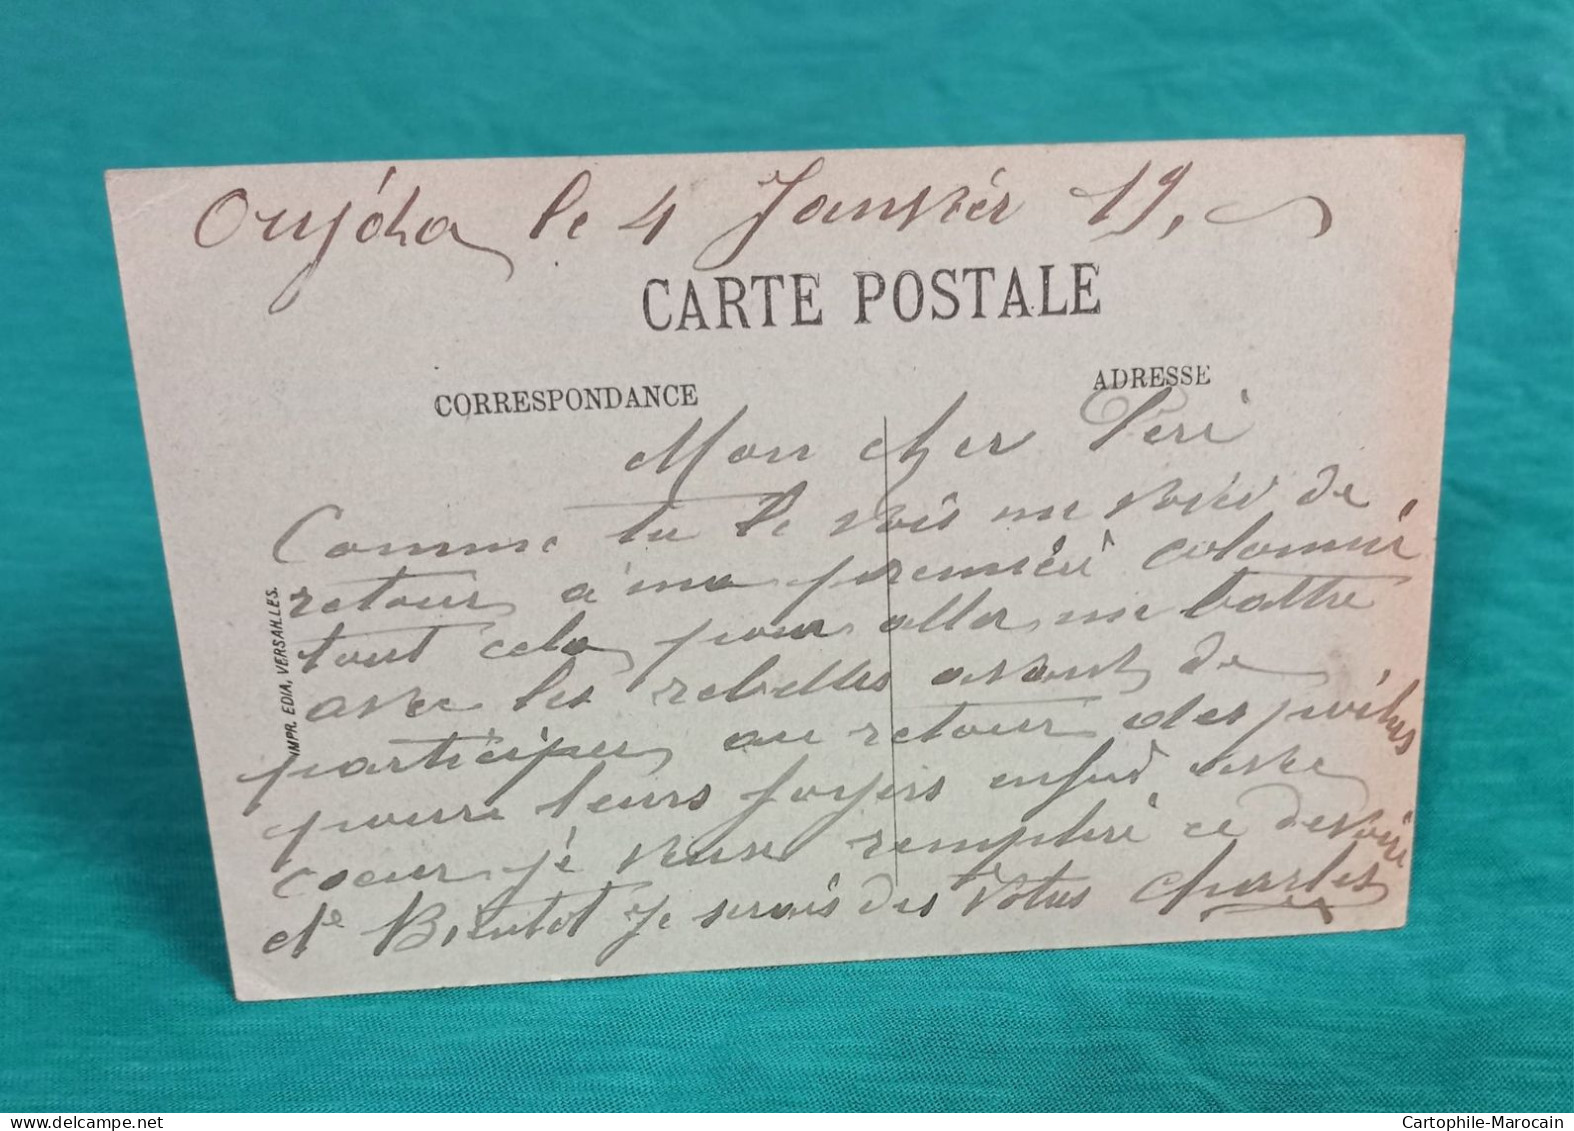 Oujda le 4 Janvier 19,
CARTE POSTALE
CORRESPONDANCE
ADRESSE
Mon cher Peri
Comme tu le vois me voici de
retour a ma premiere colonne
tout cela pour aller me battre
avec les rebelles avant de
participer au retour des poilus
pour leurs foyers enfin avec
coeur je veux remplire ce devoire
et Bientot je serais des votres Charles
IMPR. EDIA, VERSAILLES.
Cartophile-Marocain